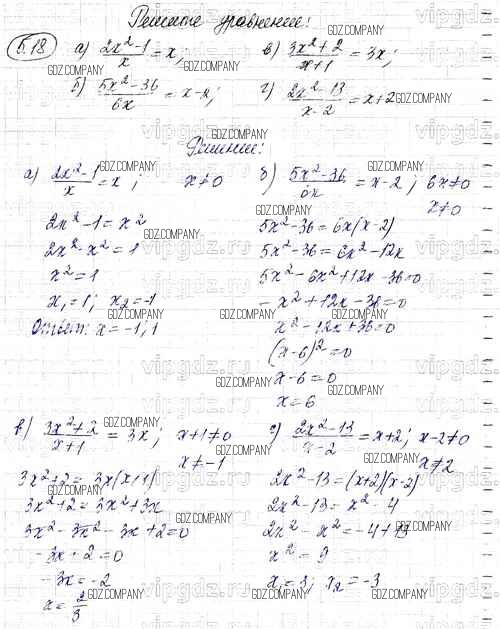 Решите уравнение:
5.18 а) (2x² - 1)/x = x; в) (3x² + 2)/(x + 1) = 3x;
б) (5x² - 36)/(6x) = x - 2; г) (2x² - 13)/(x - 2) = x + 2
Решение:
а) (2x² - 1)/x = x; x ≠ 0
2x² - 1 = x²
2x² - x² = 1
x² = 1
x₁ = 1; x₂ = -1
Ответ: x = -1; 1
б) (5x² - 36)/(6x) = x - 2; 6x ≠ 0
x ≠ 0
5x² - 36 = 6x(x - 2)
5x² - 36 = 6x² - 12x
5x² - 6x² + 12x - 36 = 0
- x² + 12x - 36 = 0
x² - 12x + 36 = 0
(x - 6)² = 0
x - 6 = 0
x = 6
в) (3x² + 2)/(x + 1) = 3x; x + 1 ≠ 0
x ≠ -1
3x² + 2 = 3x(x + 1)
3x² + 2 = 3x² + 3x
3x² - 3x² - 3x + 2 = 0
- 3x + 2 = 0
- 3x = -2
x = 2/3
г) (2x² - 13)/(x - 2) = x + 2; x - 2 ≠ 0
x ≠ 2
2x² - 13 = (x + 2)(x - 2)
2x² - 13 = x² - 4
2x² - x² = -4 + 13
x² = 9
x₁ = 3; x₂ = -3
GDZ.COMPANY
vipgdz.ru